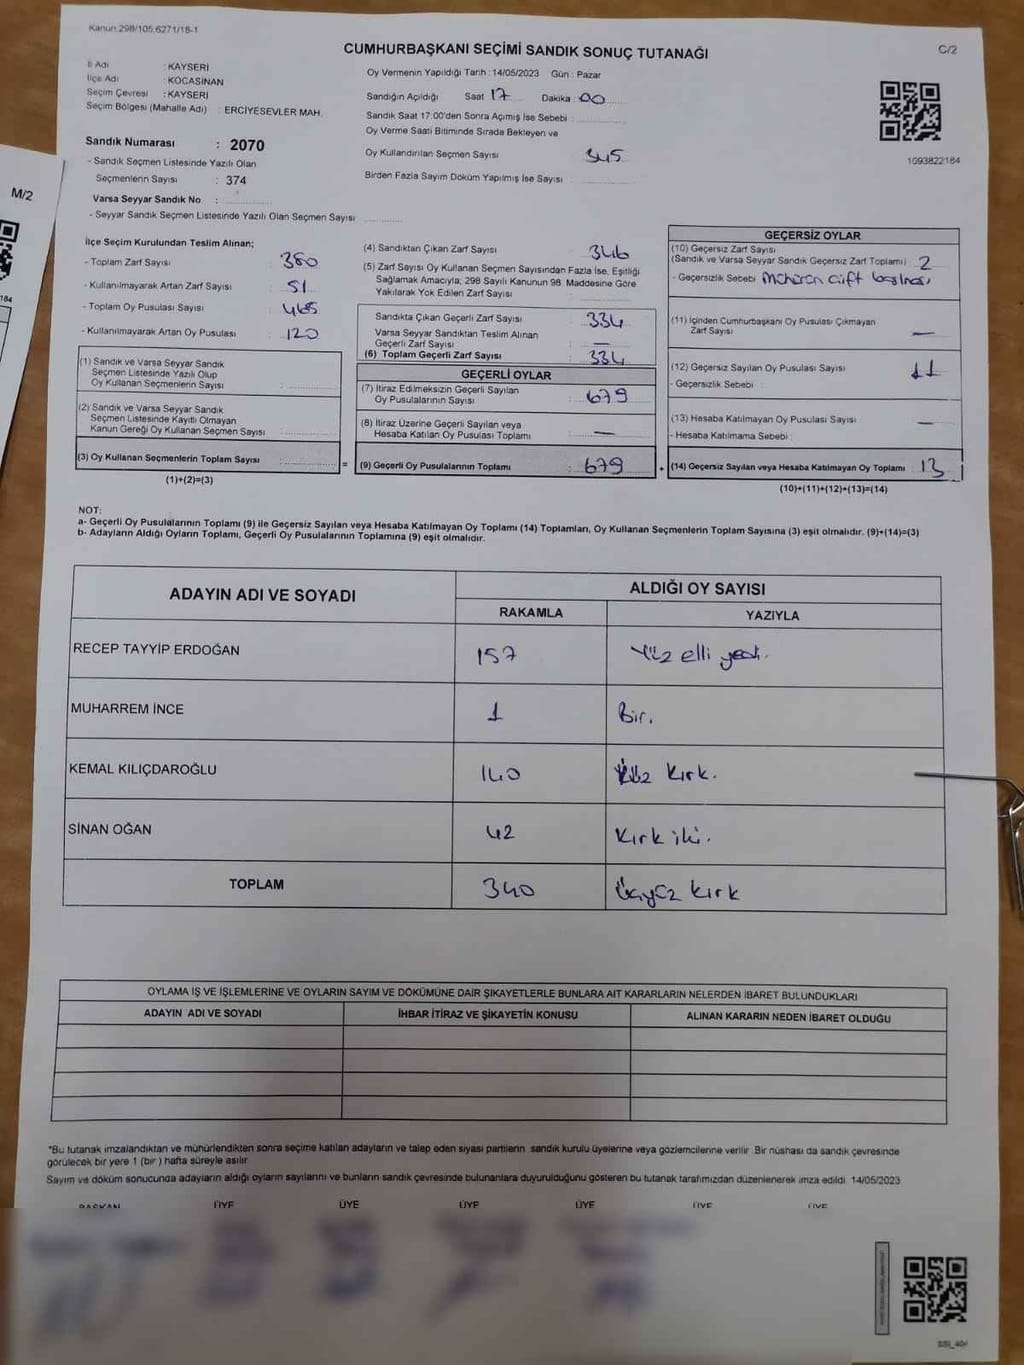 Kanun 298/105.6271/18-1
C/2
CUMHURBAŞKANI SEÇİMİ SANDIK SONUÇ TUTANAĞI
İl Adı : KAYSERİ
İlçe Adı : KOCASİNAN
Seçim Çevresi : KAYSERİ
Seçim Bölgesi (Mahalle Adı) : ERCİYESEVLER MAH.
Sandık Numarası : 2070
- Sandık Seçmen Listesinde Yazılı Olan
Seçmenlerin Sayısı : 374
Varsa Seyyar Sandık No :
- Seyyar Sandık Seçmen Listesinde Yazılı Olan Seçmen Sayısı
Oy Vermenin Yapıldığı Tarih : 14/05/2023 Gün : Pazar
Sandığın Açıldığı Saat 17 Dakika 00
Sandık Saat 17:00'den Sonra Açımış İse Sebebi :
Oy Verme Saati Bitiminde Sırada Bekleyen ve
Oy Kullandırılan Seçmen Sayısı 345
Birden Fazla Sayım Döküm Yapılmış İse Sayısı
1093822184
M/2
184
İlçe Seçim Kurulundan Teslim Alınan;
- Toplam Zarf Sayısı : 380
- Kullanılmayarak Artan Zarf Sayısı : 51
- Toplam Oy Pusulası Sayısı : 465
- Kullanılmayarak Artan Oy Pusulası : 120
(1) Sandık ve Varsa Seyyar Sandık
Seçmen Listesinde Yazılı Olup
Oy Kullanan Seçmenlerin Sayısı :
(2) Sandık ve Varsa Seyyar Sandık
Seçmen Listesinde Kayıtlı Olmayan
Kanun Gereği Oy Kullanan Seçmen Sayısı :
(3) Oy Kullanan Seçmenlerin Toplam Sayısı :
(1)+(2)=(3)
(4) Sandıktan Çıkan Zarf Sayısı 346
(5) Zarf Sayısı Oy Kullanan Seçmen Sayısından Fazla İse, Eşitliği
Sağlamak Amacıyla; 298 Sayılı Kanunun 98. Maddesine Göre
Yakılarak Yok Edilen Zarf Sayısı :
Sandıkta Çıkan Geçerli Zarf Sayısı : 334
Varsa Seyyar Sandıktan Teslim Alınan
Geçerli Zarf Sayısı : —
(6) Toplam Geçerli Zarf Sayısı : 334
GEÇERLİ OYLAR
(7) İtiraz Edilmeksizin Geçerli Sayılan
Oy Pusulalarının Sayısı : 679
(8) İtiraz Üzerine Geçerli Sayılan veya
Hesaba Katılan Oy Pusulası Toplamı : —
= (9) Geçerli Oy Pusulalarının Toplamı : 679
GEÇERSİZ OYLAR
(10) Geçersiz Zarf Sayısı
(Sandık ve Varsa Seyyar Sandık Geçersiz Zarf Toplamı) : 2
- Geçersizlik Sebebi : Mührün çift basılması
(11) İçinden Cumhurbaşkanı Oy Pusulası Çıkmayan
Zarf Sayısı : —
(12) Geçersiz Sayılan Oy Pusulası Sayısı : 11
- Geçersizlik Sebebi :
(13) Hesaba Katılmayan Oy Pusulası Sayısı : —
- Hesaba Katılmama Sebebi :
+ (14) Geçersiz Sayılan veya Hesaba Katılmayan Oy Toplamı : 13
(10)+(11)+(12)+(13)=(14)
NOT:
a- Geçerli Oy Pusulalarının Toplamı (9) ile Geçersiz Sayılan veya Hesaba Katılmayan Oy Toplamı (14) Toplamları, Oy Kullanan Seçmenlerin Toplam Sayısına (3) eşit olmalıdır. (9)+(14)=(3)
b- Adayların Aldığı Oyların Toplamı, Geçerli Oy Pusulalarının Toplamına (9) eşit olmalıdır.
ADAYIN ADI VE SOYADI
ALDIĞI OY SAYISI
RAKAMLA YAZIYLA
RECEP TAYYİP ERDOĞAN 157 Yüz elli yedi.
MUHARREM İNCE 1 Bir.
KEMAL KILIÇDAROĞLU 140 Yüz Kırk.
SİNAN OĞAN 42 Kırk iki.
TOPLAM 340 Üçyüz kırk
OYLAMA İŞ VE İŞLEMLERİNE VE OYLARIN SAYIM VE DÖKÜMÜNE DAİR ŞİKAYETLERLE BUNLARA AİT KARARLARIN NELERDEN İBARET BULUNDUKLARI
ADAYIN ADI VE SOYADI İHBAR İTİRAZ VE ŞİKAYETİN KONUSU ALINAN KARARIN NEDEN İBARET OLDUĞU
*Bu tutanak imzalandıktan ve mühürlendikten sonra seçime katılan adayların ve talep eden siyasi partilerin sandık kurulu üyelerine veya gözlemcilerine verilir. Bir nüshası da sandık çevresinde
görülecek bir yere 1 (bir ) hafta süreyle asılır.
Sayım ve döküm sonucunda adayların aldığı oyların sayılarını ve bunların sandık çevresinde bulunanlara duyurulduğunu gösteren bu tutanak tarafımızdan düzenlenerek imza edildi. 14/05/2023
BAŞKAN ÜYE ÜYE ÜYE ÜYE ÜYE ÜYE